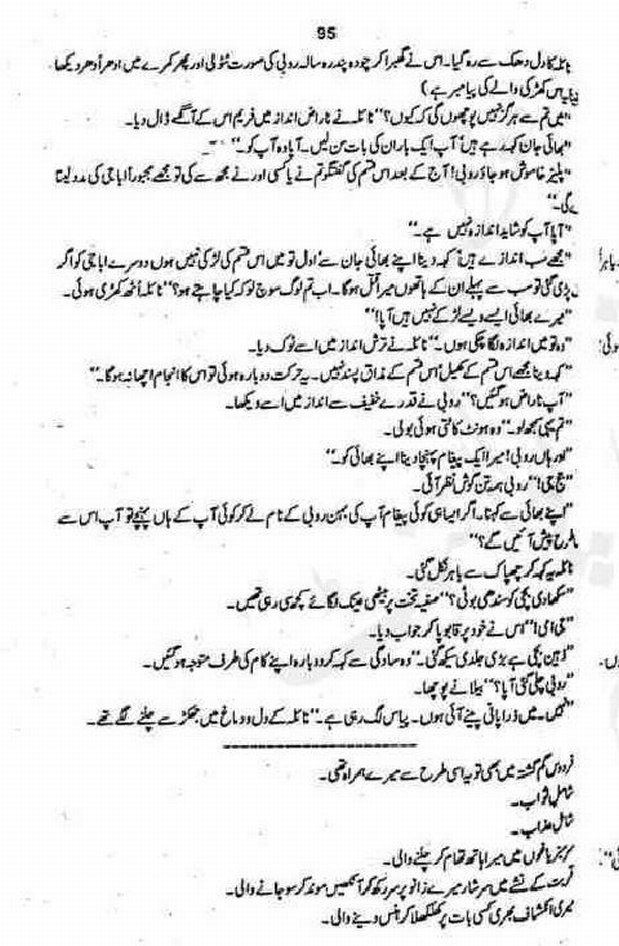 95
نائلہ کا دل دھک سے رہ گیا۔ اس نے گھبرا کر چودہ پندرہ سالہ روبی کی صورت ٹٹولی اور پھر کمرے میں ادھر اُدھر دیکھا
اس کھڑکی والے کی پیامبر ہے )
"میں تم سے ہرگز نہیں پوچھوں گی کہ کیوں؟" نائلہ نے ناراض انداز میں فریم اس کے آگے ڈال دیا۔
"بھائی جان کہہ رہے ہیں آپ ایک بار ان کی بات سن لیں۔ آپا وہ آپ کو۔"
"پلیز خاموش ہو جاؤ روبی! آج کے بعد اس قسم کی گفتگو تم نے یا کسی اور نے مجھ سے کی تو مجھے مجبوراً اباجی کی مدد لینا
گی۔"
"آپا آپ کو شاید اندازہ نہیں ہے۔"
"مجھے سب اندازے ہیں کہہ دینا اپنے بھائی جان سے اول تو میں اس قسم کی لڑکی نہیں ہوں دوسرے اباجی کو اگر
پڑ گئی تو سب سے پہلے ان کے ہاتھوں میرا قتل ہوگا۔ اب تم لوگ سوچ لو کہ کیا چاہتے ہو؟" نائلہ اُٹھ کھڑی ہوئی۔
"میرے بھائی ایسے ویسے لڑکے نہیں ہیں آپا!"
"وہ تو میں اندازہ لگا چکی ہوں۔" نائلہ نے ترش انداز میں اسے ٹوک دیا۔
"کہہ دینا مجھے اس قسم کے کھیل اُس قسم کے مذاق پسند نہیں۔ یہ حرکت دوبارہ ہوئی تو اس کا انجام اچھا نہ ہوگا۔"
"آپ ناراض ہوگئیں؟" روبی نے قدرے خفیف سے انداز میں اسے دیکھا۔
"تم یہی سمجھ لو۔" وہ ہونٹ کاٹتی ہوئی بولی۔
"اور ہاں روبی! میرا ایک پیغام پہنچا دینا اپنے بھائی کو۔"
"جج جی!" روبی ہمہ تن گوش نظر آئی۔
"اپنے بھائی سے کہنا۔ اگر ایسا ہی کوئی پیغام آپ کی بہن روبی کے نام لے کر کوئی آپ کے ہاں پہنچے تو آپ اس سے
طرح پیش آئیں گے؟"
نائلہ یہ کہہ کر چھپاک سے باہر نکل گئی۔
"سکھا دی بچی کو سندھی بوٹی؟" صفیہ تخت پر بیٹھی عینک لگائے کچھ سی رہی تھیں۔
"جی امی!" اس نے خود پر قابو پا کر جواب دیا۔
"ذہین بچی ہے بڑی جلدی سیکھ گئی۔" وہ سادگی سے کہہ کر دوبارہ اپنے کام کی طرف متوجہ ہوگئیں۔
"روبی چلی گئی آپا؟" بیلا نے پوچھا۔
"نہیں۔ میں ذرا پانی پینے آئی ہوں۔ پیاس لگ رہی ہے۔" نائلہ کے دل و دماغ میں جھکڑ سے چلنے لگے تھے۔
فردوس گم گشتہ میں بھی تو یہ اسی طرح سے میرے ہمراہ تھی۔
شامل ثواب۔
شامل عذاب۔
باغوں میں میرا ہاتھ تھام کر چلنے والی۔
قربت کے نشے میں سرشار میرے زانو پر سر رکھ کر آنکھیں موند کر سو جانے والی۔
میری انکشاف بھری کسی بات پر کھلکھلا کر ہنس دینے والی۔